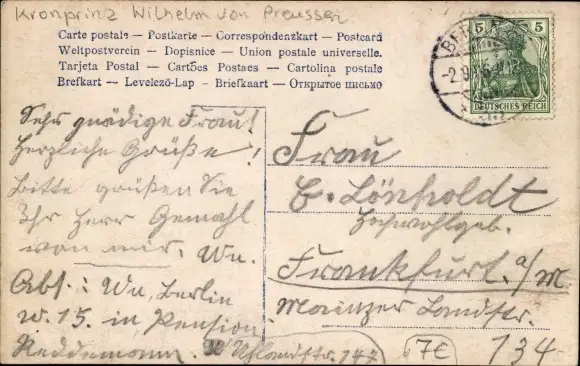 Kronprinz Wilhelm von Preussen
Carte postale — Postkarte — Correspondenzkart — Postcard
Weltpostverein — Dopisnice — Union postale universelle.
Tarjeta Postal — Cartões Postaes — Cartolina postale
Brefkart — Levelező-Lap — Briefkaart — Открытое письмо
5 5
DEUTSCHES REICH
BERLIN
Sehr gnädige Frau!
Herzliche Grüße!
Bitte grüßen Sie
Ihr Herr Gemahl
von mir. Wu.
Abs: Wu, Berlin
W. 15. in Pension
Reddemann. Uhlandstr. 147
Frau
E. Lönholdt
Hochwohlgeb.
Frankfurt a/M.
Mainzer Landstr.
134
7€